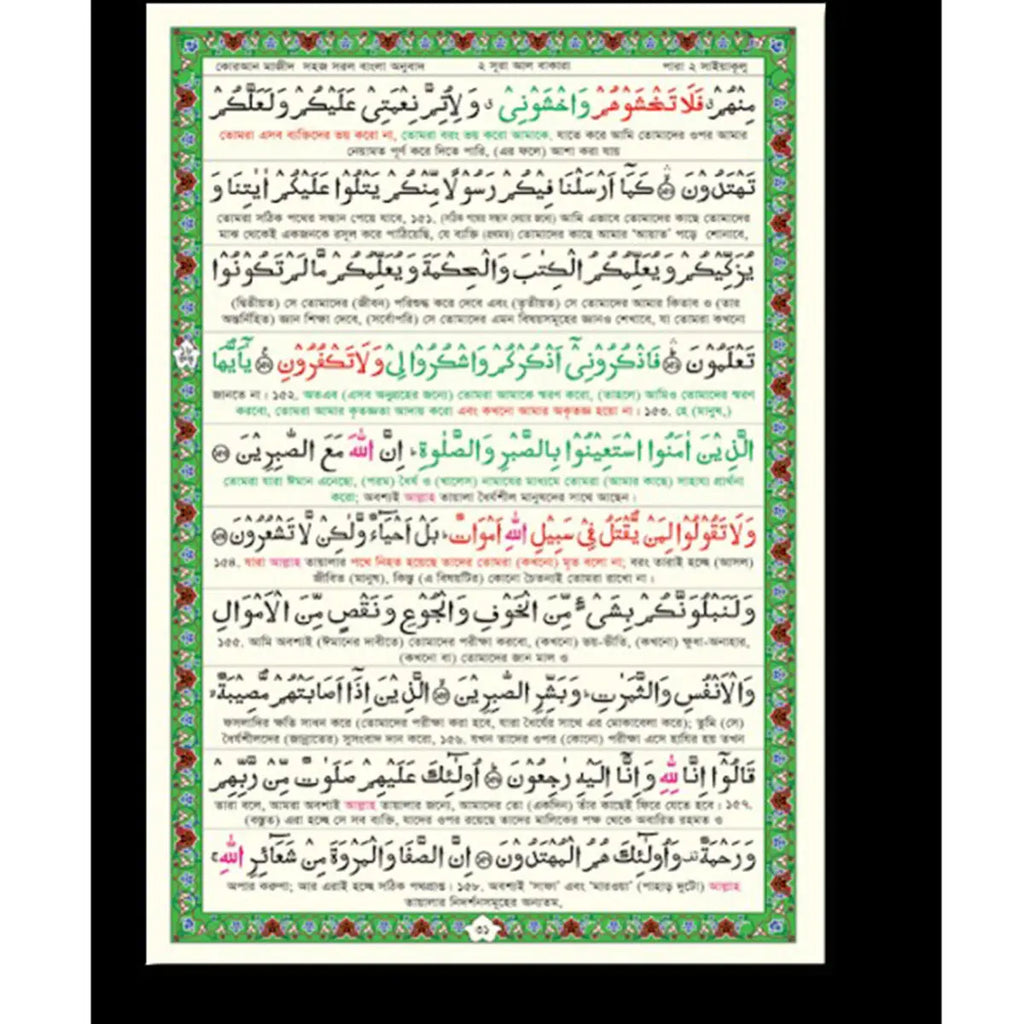 কোরআন মাজীদ সহজ সরল বাংলা অনুবাদ ২ সূরা আল বাকারা পারা ২ সাইয়াকূলু
مِنْهُمْ فَلَا تَخْشَوْهُمْ وَاخْشَوْنِىْ وَلِاُتِمَّ نِعْمَتِىْ عَلَيْكُمْ وَلَعَلَّكُمْ
তোমরা এসব ব্যক্তিদের ভয় করো না, তোমরা বরং ভয় করো আমাকে, যাতে করে আমি তোমাদের ওপর আমার
নেয়ামত পূর্ণ করে দিতে পারি, (এর ফলে) আশা করা যায়
تَهْتَدُوْنَ ۝ كَمَآ اَرْسَلْنَا فِيْكُمْ رَسُوْلًا مِّنْكُمْ يَتْلُوْا عَلَيْكُمْ اٰيٰتِنَا وَ
তোমরা সঠিক পথের সন্ধান পেয়ে যাবে, ১৫১. (সঠিক পথের সন্ধান দেয়ার জন্যে) আমি এভাবে তোমাদের কাছে তোমাদের
মাঝ থেকেই একজনকে রসূল করে পাঠিয়েছি, যে ব্যক্তি (প্রথমত) তোমাদের কাছে আমার 'আয়াত' পড়ে শোনাবে,
يُزَكِّيْكُمْ وَيُعَلِّمُكُمُ الْكِتٰبَ وَالْحِكْمَةَ وَيُعَلِّمُكُمْ مَّا لَمْ تَكُوْنُوْا
(দ্বিতীয়ত) সে তোমাদের (জীবন) পরিশুদ্ধ করে দেবে এবং (তৃতীয়ত) সে তোমাদের আমার কিতাব ও (তার
অন্তর্নিহিত) জ্ঞান শিক্ষা দেবে, (সর্বোপরি) সে তোমাদের এমন বিষয়সমূহের জ্ঞানও শেখাবে, যা তোমরা কখনো
تَعْلَمُوْنَ ۝ فَاذْكُرُوْنِىْٓ اَذْكُرْكُمْ وَاشْكُرُوْا لِىْ وَلَا تَكْفُرُوْنِ ۝ يٰٓاَيُّهَا
জানতে না। ১৫২. অতএব (এসব অনুগ্রহের জন্যে) তোমরা আমাকে স্মরণ করো, (তাহলে) আমিও তোমাদের স্মরণ
করবো, তোমরা আমার কৃতজ্ঞতা আদায় করো এবং কখনো আমার অকৃতজ্ঞ হয়ো না। ১৫৩. হে (মানুষ,)
الَّذِيْنَ اٰمَنُوا اسْتَعِيْنُوْا بِالصَّبْرِ وَالصَّلٰوةِ ؕ اِنَّ اللّٰهَ مَعَ الصّٰبِرِيْنَ ۝
তোমরা যারা ঈমান এনেছো, (পরম) ধৈর্য ও (খালেস) নামাযের মাধ্যমে তোমরা (আমার কাছে) সাহায্য প্রার্থনা
করো; অবশ্যই আল্লাহ তায়ালা ধৈর্যশীল মানুষদের সাথে আছেন।
وَلَا تَقُوْلُوْا لِمَنْ يُّقْتَلُ فِىْ سَبِيْلِ اللّٰهِ اَمْوَاتٌ ؕ بَلْ اَحْيَآءٌ وَّلٰكِنْ لَّا تَشْعُرُوْنَ ۝
১৫৪. যারা আল্লাহ তায়ালার পথে নিহত হয়েছে তাদের তোমরা (কখনো) মৃত বলো না; বরং তারাই হচ্ছে (আসল)
জীবিত (মানুষ), কিন্তু (এ বিষয়টির) কোনো চৈতন্যই তোমরা রাখো না।
وَلَنَبْلُوَنَّكُمْ بِشَىْءٍ مِّنَ الْخَوْفِ وَالْجُوْعِ وَنَقْصٍ مِّنَ الْاَمْوَالِ
১৫৫. আমি অবশ্যই (ঈমানের দাবীতে) তোমাদের পরীক্ষা করবো, (কখনো) ভয়-ভীতি, (কখনো) ক্ষুধা-অনাহার,
(কখনো বা) তোমাদের জান মাল ও
وَالْاَنْفُسِ وَالثَّمَرٰتِ ؕ وَبَشِّرِ الصّٰبِرِيْنَ ۝ الَّذِيْنَ اِذَآ اَصَابَتْهُمْ مُّصِيْبَةٌ
ফসলাদির ক্ষতি সাধন করে (তোমাদের পরীক্ষা করা হবে, যারা ধৈর্যের সাথে এর মোকাবেলা করে); তুমি (সে)
ধৈর্যশীলদের (জান্নাতের) সুসংবাদ দান করো, ১৫৬. যখন তাদের ওপর (কোনো) পরীক্ষা এসে হাযির হয় তখন
قَالُوْٓا اِنَّا لِلّٰهِ وَاِنَّآ اِلَيْهِ رٰجِعُوْنَ ۝ اُولٰٓئِكَ عَلَيْهِمْ صَلَوٰتٌ مِّنْ رَّبِّهِمْ
তারা বলে, আমরা অবশ্যই আল্লাহ তায়ালার জন্যে, আমাদের তো (একদিন) তাঁর কাছেই ফিরে যেতে হবে। ১৫৭.
(বস্তুত) এরা হচ্ছে সে সব ব্যক্তি, যাদের ওপর রয়েছে তাদের মালিকের পক্ষ থেকে অবারিত রহমত ও
وَرَحْمَةٌ وَاُولٰٓئِكَ هُمُ الْمُهْتَدُوْنَ ۝ اِنَّ الصَّفَا وَالْمَرْوَةَ مِنْ شَعَآئِرِ اللّٰهِ
অপার করুণা; আর এরাই হচ্ছে সঠিক পথপ্রাপ্ত। ১৫৮. অবশ্যই 'সাফা' এবং 'মারওয়া' (পাহাড় দুটো) আল্লাহ
তায়ালার নিদর্শনসমূহের অন্যতম,
৩১